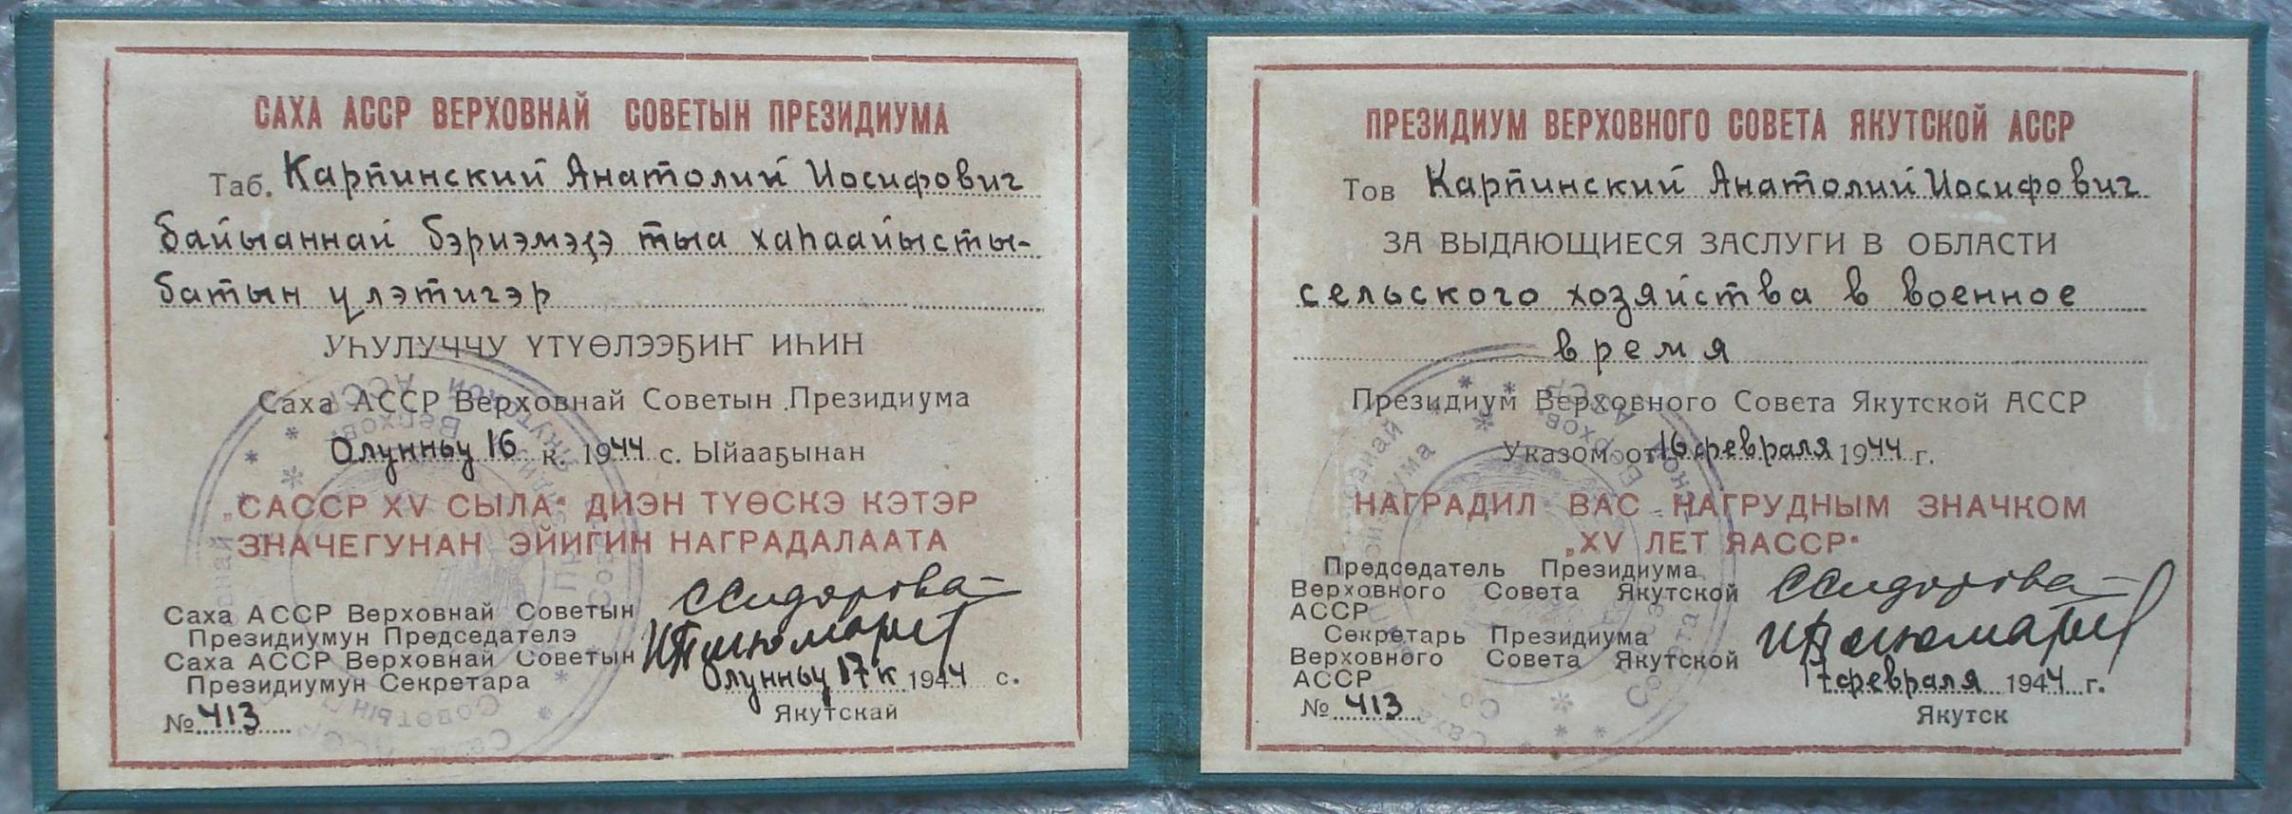 САХА АССР ВЕРХОВНАЙ СОВЕТЫН ПРЕЗИДИУМА
Таб. Карпинский Анатолий Иосифович
байыаннай бэриэмэҕэ тыа хаһаайысты-
батын үлэтигэр
УҺУЛУЧЧУ ҮТҮӨЛЭЭҔИҤ ИҺИН
Саха АССР Верховнай Советын Президиума
Олунньу 16 к. 1944 с. Ыйааҕынан
„САССР XV СЫЛА“ ДИЭН ТҮӨСКЭ КЭТЭР
ЗНАЧЕГУНАН ЭЙИГИН НАГРАДАЛААТА
Саха АССР Верховнай Советын
Президиумун Председателэ
Саха АССР Верховнай Советын
Президиумун Секретара
С Сидорова
Олунньу 17 к 1944 с.
№ 413
Якутскай
ПРЕЗИДИУМ ВЕРХОВНОГО СОВЕТА ЯКУТСКОЙ АССР
Тов Карпинский Анатолий Иосифович
ЗА ВЫДАЮЩИЕСЯ ЗАСЛУГИ В ОБЛАСТИ
сельского хозяйства в военное
время
Президиум Верховного Совета Якутской АССР
Указом от 16 февраля 1944 г.
НАГРАДИЛ ВАС НАГРУДНЫМ ЗНАЧКОМ
„XV ЛЕТ ЯАССР“
Председатель Президиума
Верховного Совета Якутской
АССР
С Сидорова
Секретарь Президиума
Верховного Совета Якутской
АССР
17 февраля 1944 г.
№ 413
Якутск